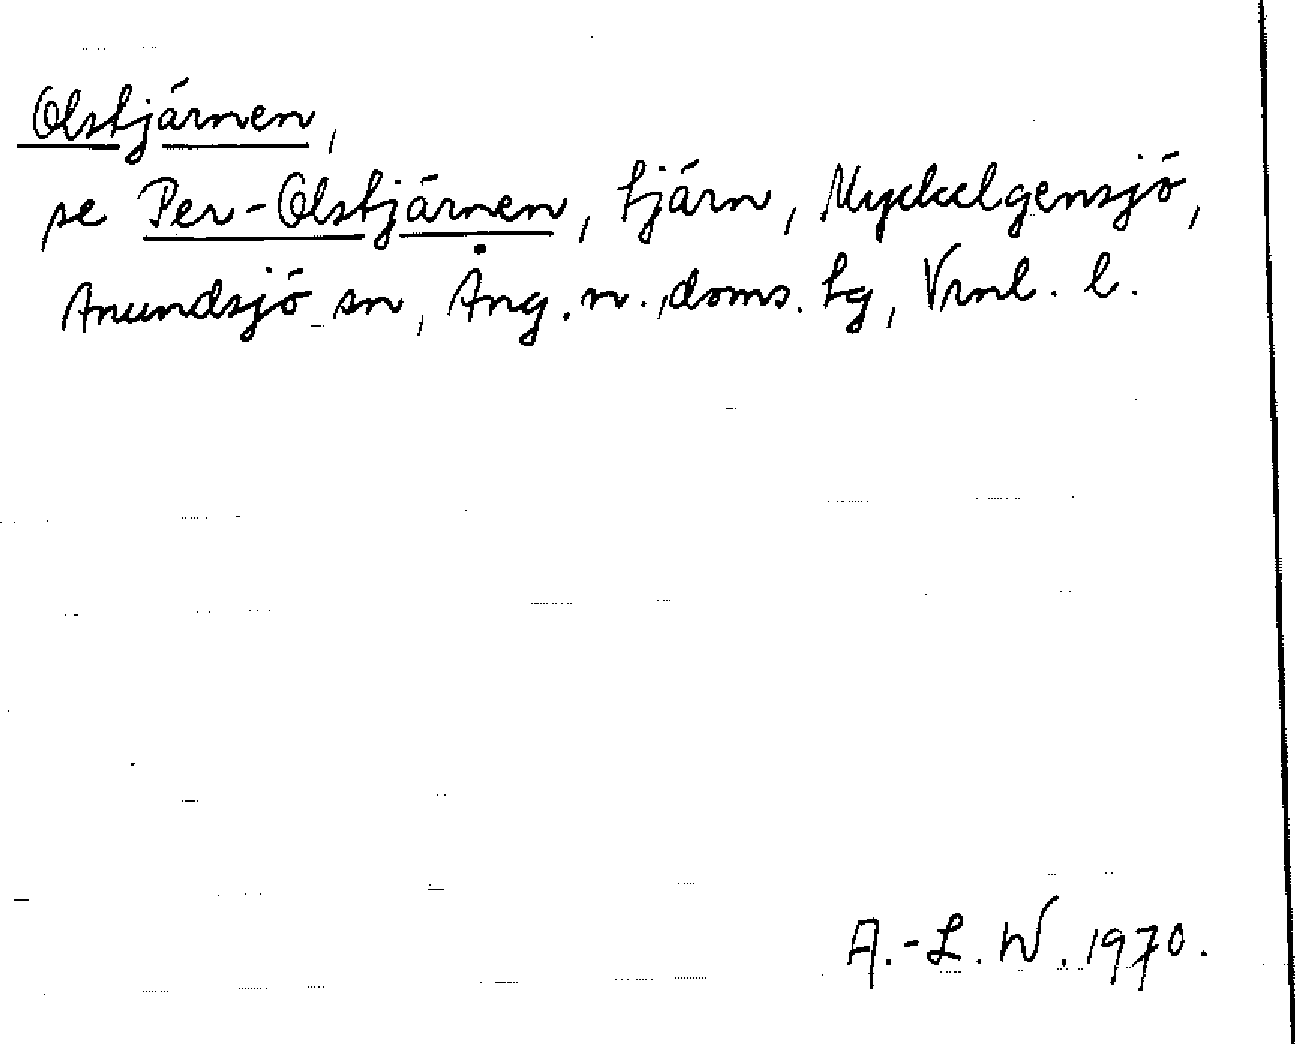 Olstjärnen,
se Per-Olstjärnen, tjärn, Myckelgensjö,
Anundsjö sn, Ång. n. doms. tg, Vrnl. l.
A.-L. W. 1970.